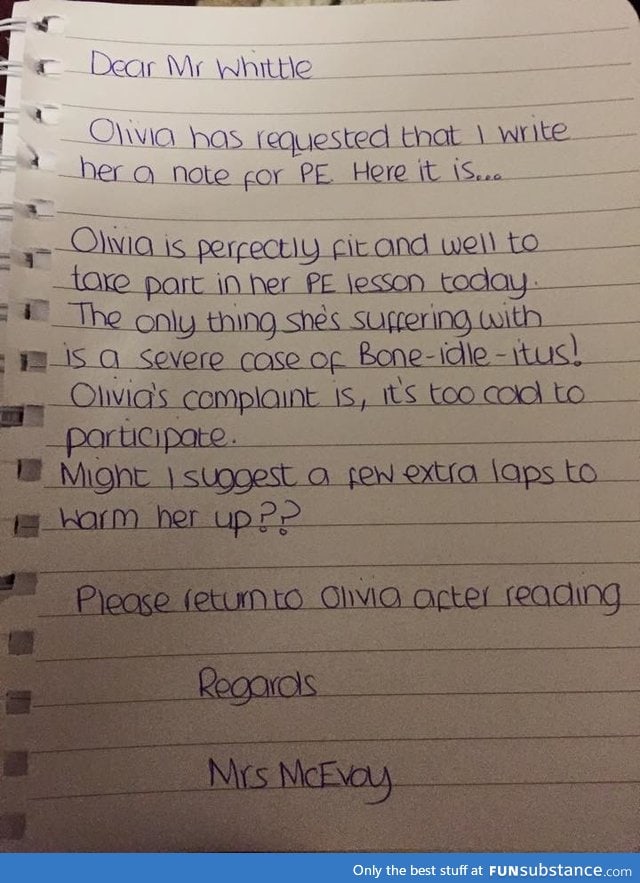 Dear Mr Whittle
Olivia has requested that I write
her a note for PE Here it is...
Olivia is perfectly fit and well to
take part in her PE lesson today.
The only thing she's suffering with
is a severe case of Bone-idle-itus!
Olivia's complaint is, it's too cold to
participate.
Might I suggest a few extra laps to
warm her up??
Please return to Olivia after reading
Regards
Mrs McEvoy
Only the best stuff at FUNsubstance.com